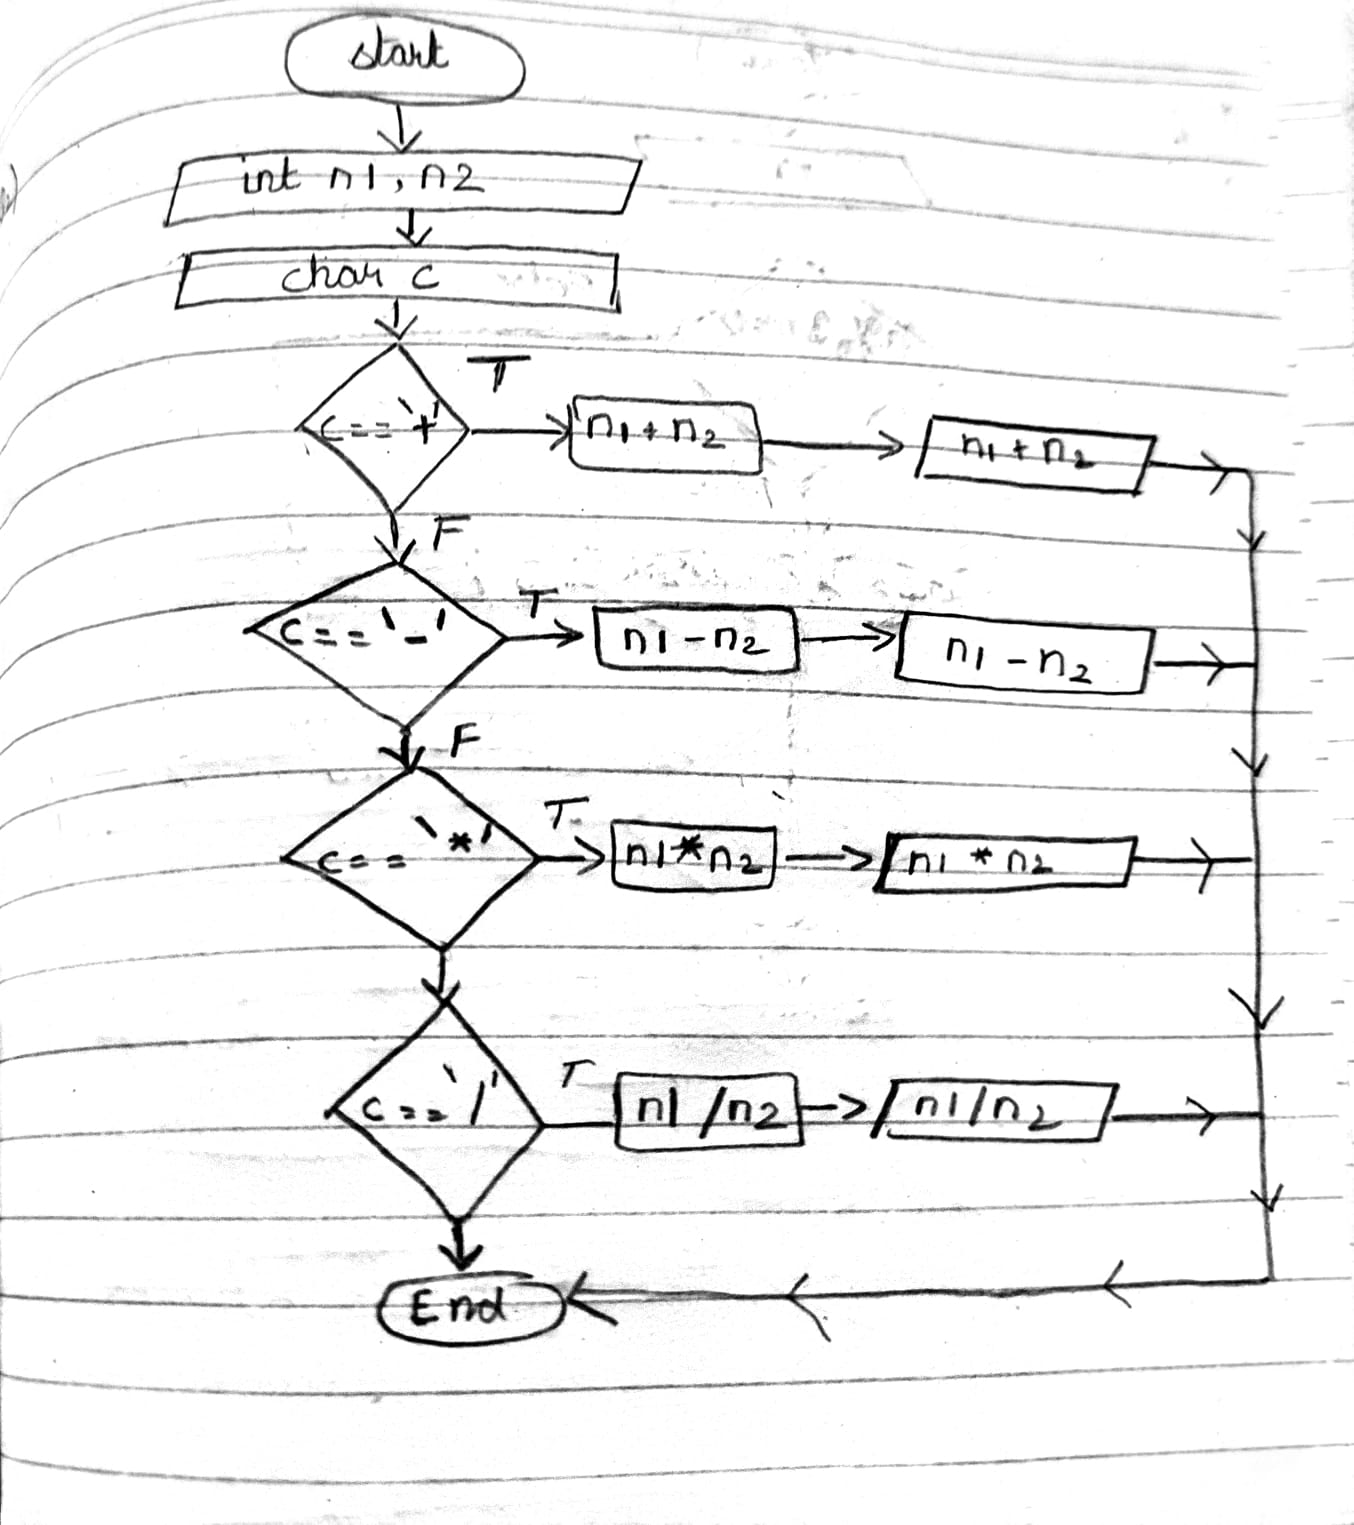 start
int n1, n2
char c
T
c == '+' n1 + n2 n1 + n2
F
T
c == '-' n1 - n2 n1 - n2
F
T
c == '*' n1 * n2 n1 * n2
T
c == '/' n1 / n2 n1 / n2
End